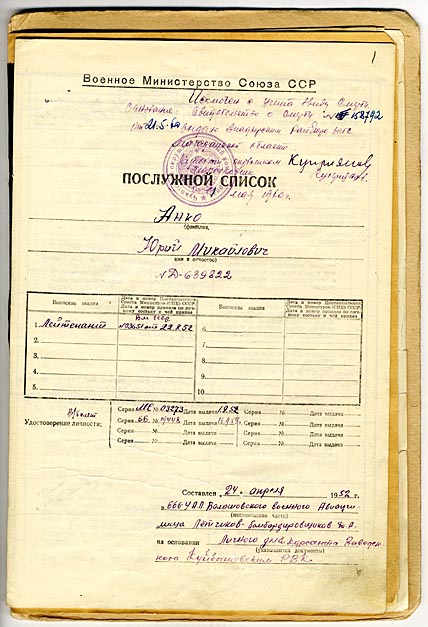 1
Военное Министерство Союза ССР
Исключен с учета ввиду смерти
Основание: Свидетельство о смерти № 158792
от 21.5.60
области
Куприянов
ПОСЛУЖНОЙ СПИСОК
мая 1960г.
Анко
(фамилия,
Юрий Михайлович
имя и отчество)
Д-639822
Воинские звания
Дата и номер Постановления Совета Министров (СНК) СССР. Дата и номер приказа по личному составу и чей приказ
Воинские звания
Дата и номер Постановления Совета Министров (СНК) СССР. Дата и номер приказа по личному составу и чей приказ
1. Лейтенант
ВМ СССР
от 22.8.52
6.
2.
7.
3.
8.
4.
9.
5.
10.
Удостоверение личности:
В/билет
Серия МС № 03273 Дата выдачи 1952 Серия № Дата выдачи
Серия ББ № Дата выдачи Серия № Дата выдачи
Серия № Дата выдачи Серия № Дата выдачи
Серия № Дата выдачи Серия № Дата выдачи
Составлен „24" апреля 1952 г.
в 666 УАП Балашовского военного Авиаучи-
(наименование части)
лища Летчиков-бомбардировщиков
на основании Личного дела курсанта Заведен-
(указываются документы)
ного Куйбышевским РВК